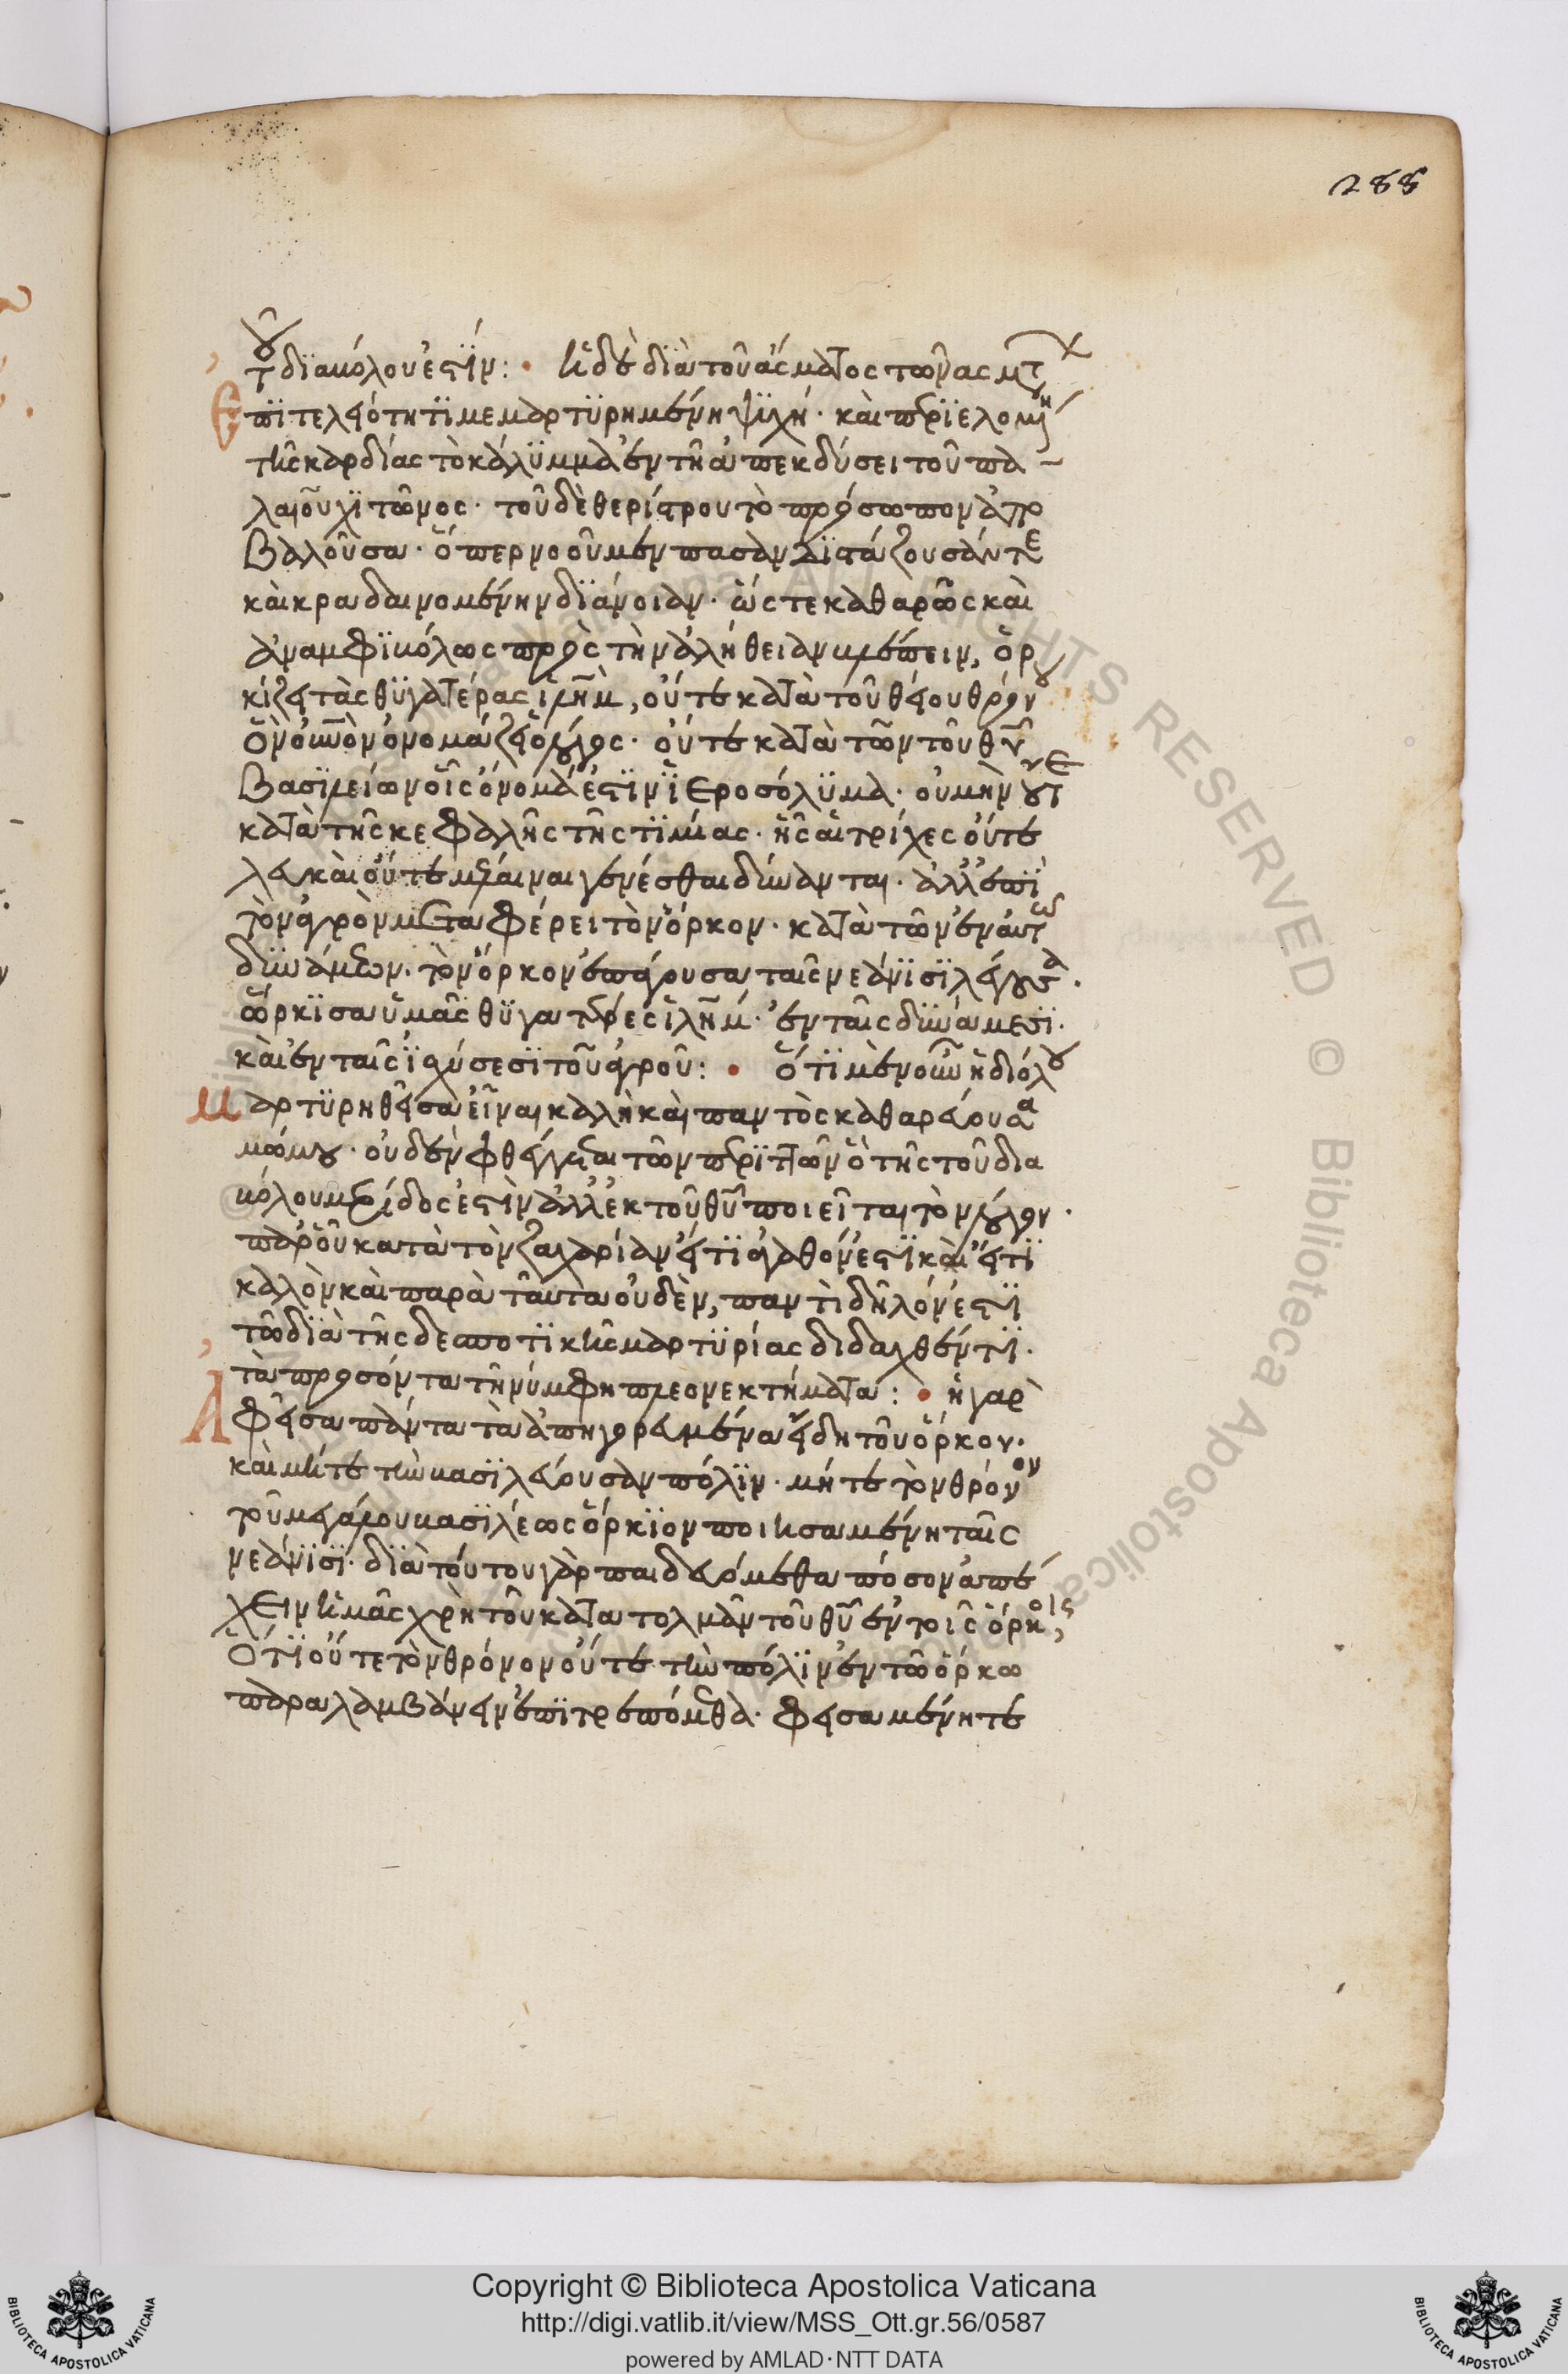 288
τοῦ διαβόλου ἐστίν: · ἡ δὲ διὰ τοῦ ἄσματος τῶν ἀσμάτ
ἐπὶ τελειότητι μεμαρτυρημένη ψυχή· καὶ περιελομένη
τῆς καρδίας τὸ κάλυμμα ἐν τῇ ἀπεκδύσει τοῦ πα-
λαιοῦ χιτῶνος· τοῦ δὲ θερίστρου τὸ πρόσωπον ἀπο
βαλοῦσα· ὅπερ νοοῦμεν πᾶσαν διστάζουσάν τε
καὶ κραδαινομένην διάνοιαν· ὥστε καθαρῶς καὶ
ἀναμφιβόλως πρὸς τὴν ἀλήθειαν βλέπειν, ὁρ
κίζει τὰς θυγατέρας ἰλημ, οὔτε κατὰ τοῦ θείου θρόνου
ὃν οὐνὸν ὀνομάζει ὁ λόγος· οὔτε κατὰ τῶν τοῦ θυ
βασιλείων οἷς ὄνομά ἐστιν ἱεροσόλυμα· οὐ μὴν οὔτε
κατὰ τῆς κεφαλῆς τῆς τιμίας· ἧς αἱ τρίχες οὔτε
λευκαὶ οὔτε μέλαιναι γενέσθαι δύνανται· ἀλλ' ἐπὶ
τὸν ἀγρὸν μεταφέρει τὸν ὅρκον· κατὰ τῶν ἐν αὐτῷ
δυνάμεων· τὸν ὅρκον ἐπάγουσα ταῖς νεάνισι λέγουσα·
ὥρκισα ὑμᾶς θυγατέρες ἰλημ· ἐν ταῖς δυνάμεσι·
καὶ ἐν ταῖς ἰσχύσεσι τοῦ ἀγροῦ: · ὅτι μὲν οὖν ἡ διόλου
μαρτυρηθεῖσα εἶναι καλὴ καὶ παντὸς καθαρεύουσα
μώμου· οὐδὲν φθέγγεται τῶν περιττῶν ὃ τῆς τοῦ δια
βόλου μερίδος ἐστὶν ἀλλ' ἐκ τοῦ θυ ποιεῖται τὸν λόγον·
παρ' οὗ κατὰ τὸν ζαχαρίαν εἴ τι ἀγαθόν ἐστι καὶ εἴ τι
καλὸν καὶ παρὰ ταῦτα οὐδὲν, παντὶ δῆλόν ἐστι
τῷ διὰ τῆς δεσποτικῆς μαρτυρίας διδαχθέντι·
τὰ προσόντα τῇ νύμφη πλεονεκτήματα: · ἡ γὰρ
ἀφεῖσα πάντα τὰ ἀπηγορευμένα εἴδη τοῦ ὅρκου·
καὶ μήτε τὴν βασιλεύουσαν πόλιν· μήτε τὸν θρόνον
τοῦ μεγάλου βασιλέως ὅρκιον ποιησαμένη ταῖς
νεάνισι· διὰ τούτου γὰρ παιδευόμεθα πόσον ἀπέ
χειν ἡμᾶς χρὴ τοῦ κατατολμᾶν τοῦ θυ ἐν τοῖς ὅρκοις,
ὅτι οὔτε τὸν θρόνον οὔτε τὴν πόλιν ἐν τῷ ὅρκω
παραλαμβάνειν ἐπιτρεπόμεθα· φεισαμένη τε
Copyright © Biblioteca Apostolica Vaticana
http://digi.vatlib.it/view/MSS_Ott.gr.56/0587
powered by AMLAD·NTT DATA